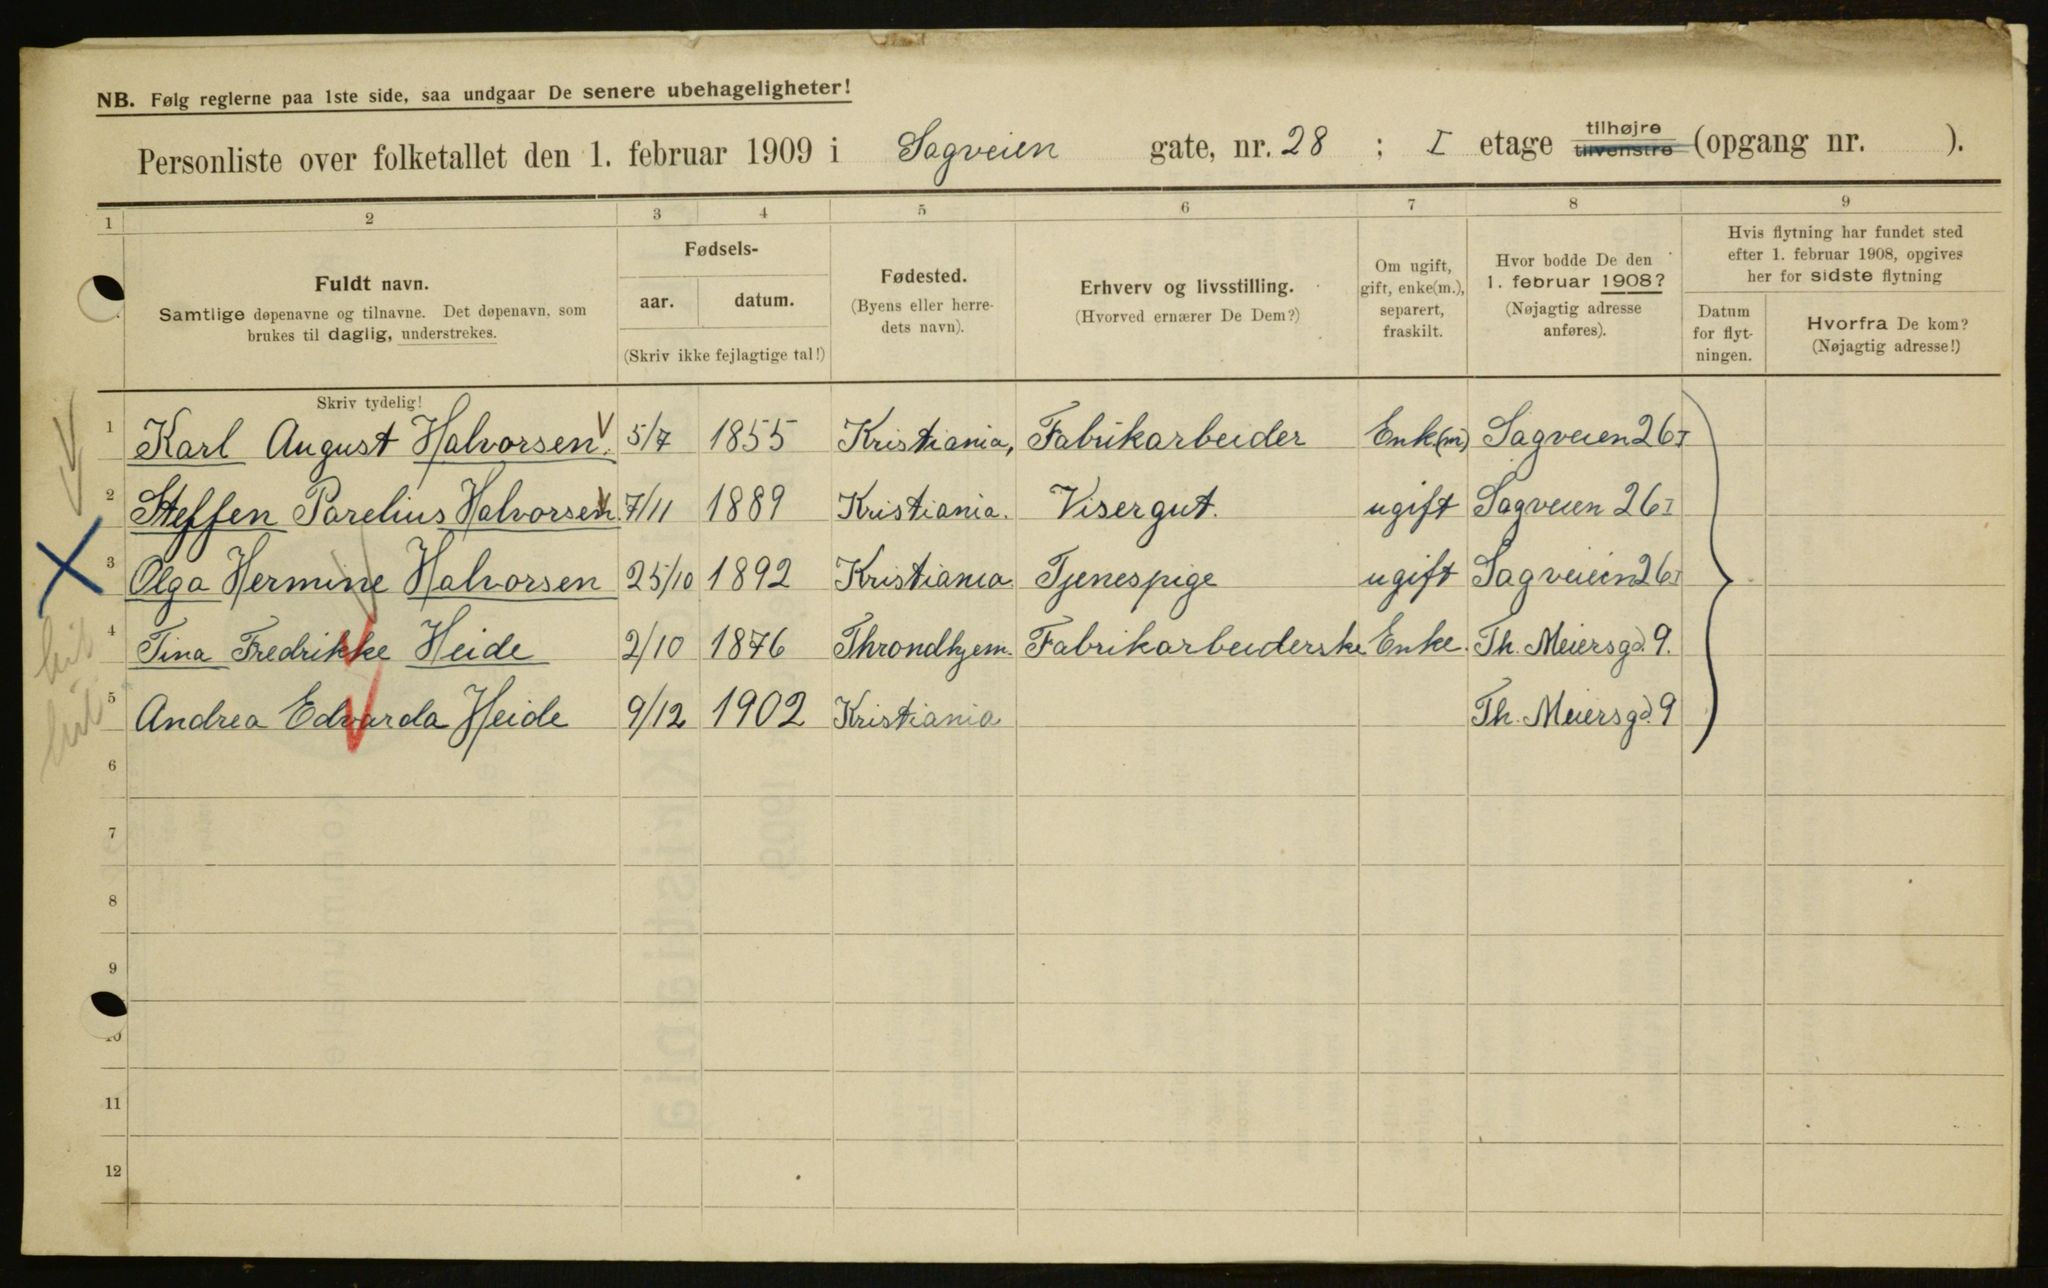 NB. Følg reglerne paa 1ste side, saa undgaar De senere ubehageligheter!
Personliste over folketallet den 1. februar 1909 i Sagveien gate, nr. 28 ; I etage tilhøjre tilvenstre (opgang nr. ).
1 2 3 4 5 6 7 8 9
Fuldt navn.
Samtlige døpenavne og tilnavne. Det døpenavn, som
brukes til daglig, understrekes.
Fødsels-
aar. datum.
(Skriv ikke fejlagtige tal!)
Fødested.
(Byens eller herre-
dets navn).
Erhverv og livsstilling.
(Hvorved ernærer De Dem?)
Om ugift,
gift, enke(m.),
separert,
fraskilt.
Hvor bodde De den
1. februar 1908?
(Nøjagtig adresse
anføres).
Hvis flytning har fundet sted
efter 1. februar 1908, opgives
her for sidste flytning
Datum
for flyt-
ningen.
Hvorfra De kom?
(Nøjagtig adresse!)
Skriv tydelig!
1 Karl August Halvorsen. 5/7 1855 Kristiania, Fabrikarbeider Enk(m) Sagveien 26 I
2 Steffen Parelius Halvorsen. 7/11 1889 Kristiania. Visergut. ugift Sagveien 26 I
3 Olga Hermine Halvorsen 25/10 1892 Kristiania Tjenespige ugift Sagveien 26 I
4 Tina Fredrikke Heide 2/10 1876 Throndhjem. Fabrikarbeiderske Enke. Th. Meiersgd. 9.
5 Andrea Edvarda Heide 9/12 1902 Kristiania Th. Meiersgd. 9
6
7
8
9
10
11
12